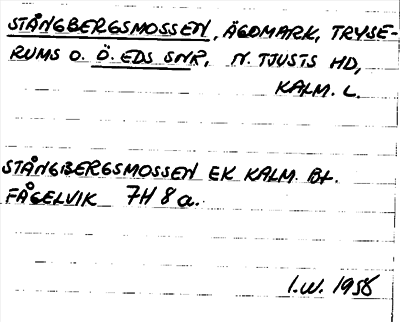 STÅNGBERGSMOSSEN, ÄGOMARK, TRYSE-
RUMS O. Ö. EDS SNR, N. TJUSTS HD,
KALM. L.
STÅNGBERGSMOSSEN EK KALM. Bl.
FÅGELVIK 7H 8 a.
I.W. 1958